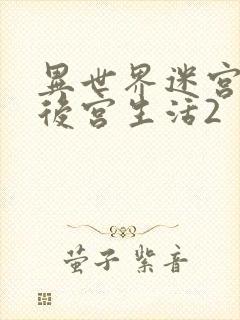 異世界迷宮
後宮生活2
萤子 紫音